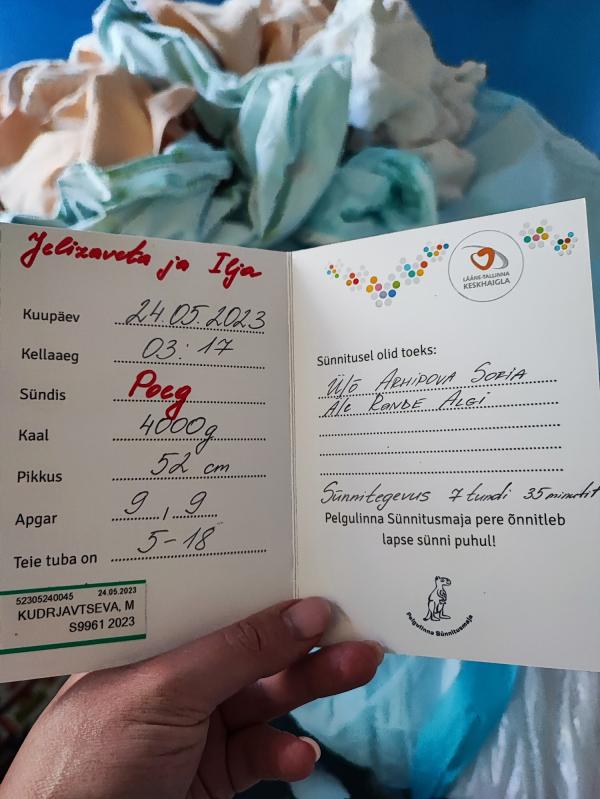 Jelizaveta ja Ilja
Kuupäev 24.05.2023
Kellaaeg 03:17
Sündis Poeg
Kaal 4000g
Pikkus 52 cm
Apgar 9, 9
Teie tuba on 5-18
52305240045 24.05.2023
KUDRJAVTSEVA, M
S9961 2023
LÄÄNE-TALLINNA
KESKHAIGLA
Sünnitusel olid toeks:
Ü/õ ARHIPOVA SOFIA
A/e RONDE ALGI
Sünnitegevus 7 tundi 35 minutit
Pelgulinna Sünnitusmaja pere õnnitleb
lapse sünni puhul!
Pelgulinna Sünnitusmaja